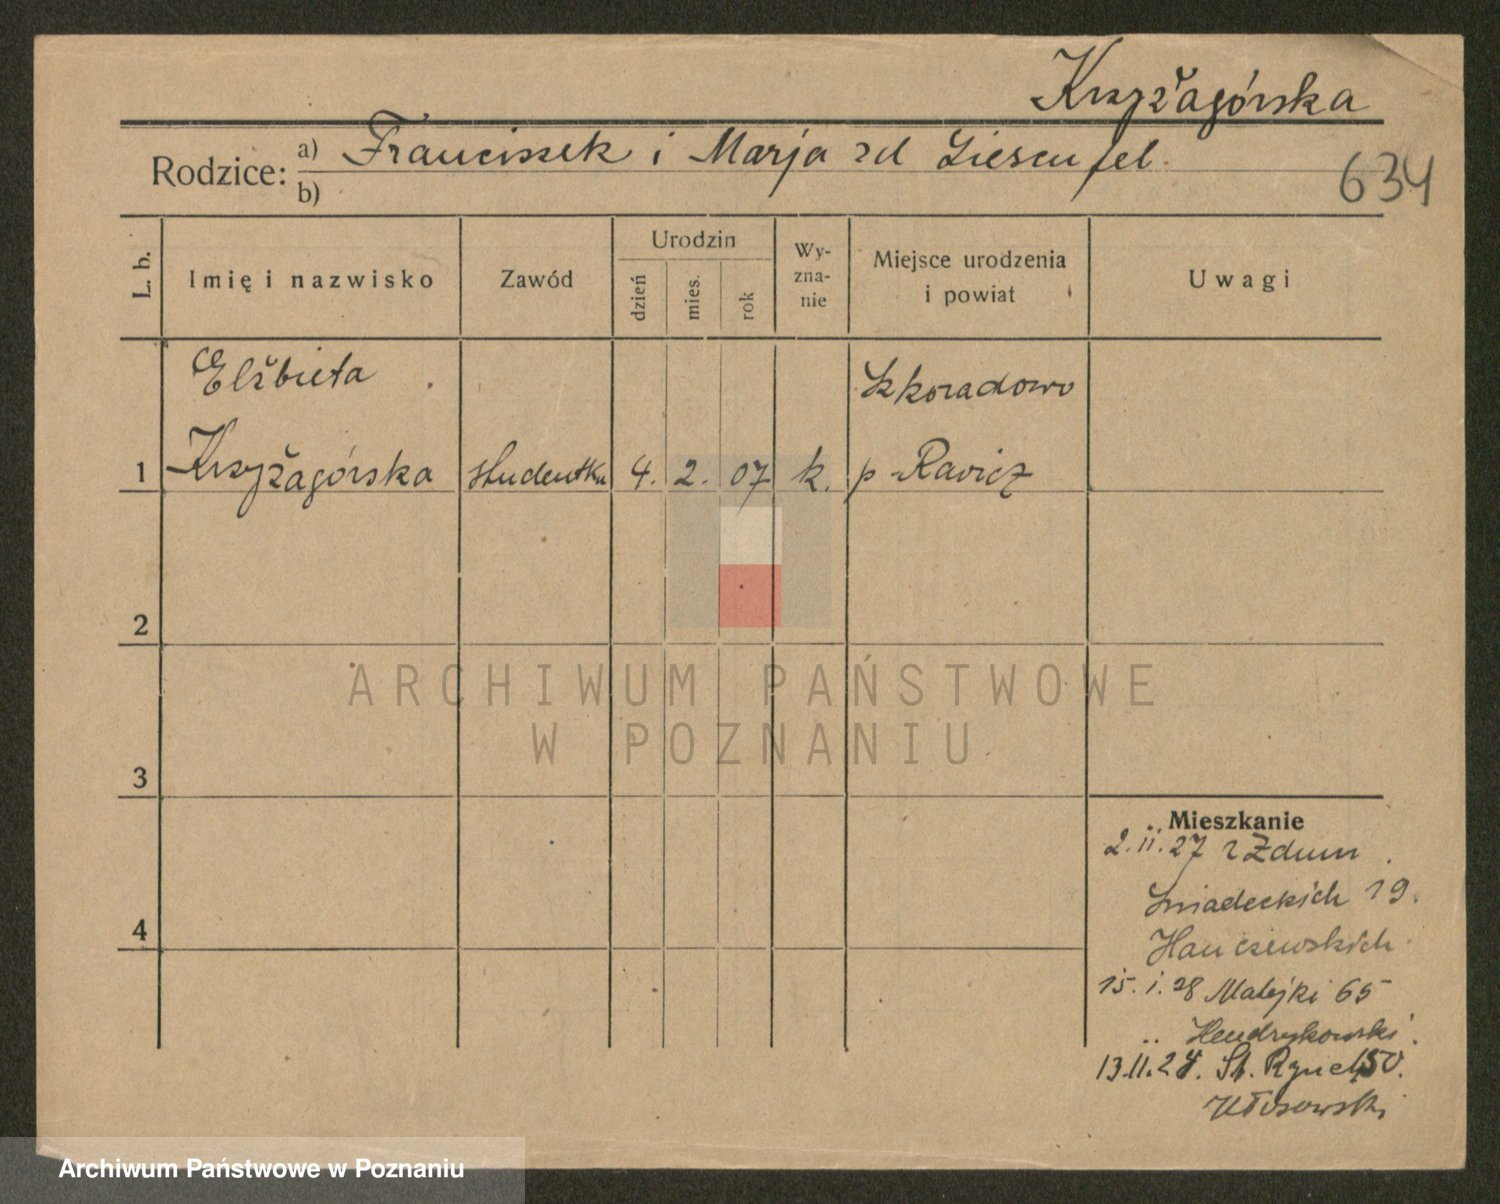 Krzyżagórska
Rodzice: a) Franciszek i Marja zd Liesenfel
b)
634
L. b.
Imię i nazwisko
Zawód
Urodzin
dzień
mies.
rok
Wy-
zna-
nie
Miejsce urodzenia
i powiat
Uwagi
Elżbieta
Szkoradowo
1 Krzyżagórska studentka 4. 2. 07 k. p Rawicz
2
3
4
Mieszkanie
2.II.27 z Zdun
Śniadeckich 19.
Hanczewskich
15.I.28 Matejki 65
Hendrykowski
13.II.28. St. Rynek 50.
Kłosowski
ARCHIWUM PAŃSTWOWE
W POZNANIU
Archiwum Państwowe w Poznaniu